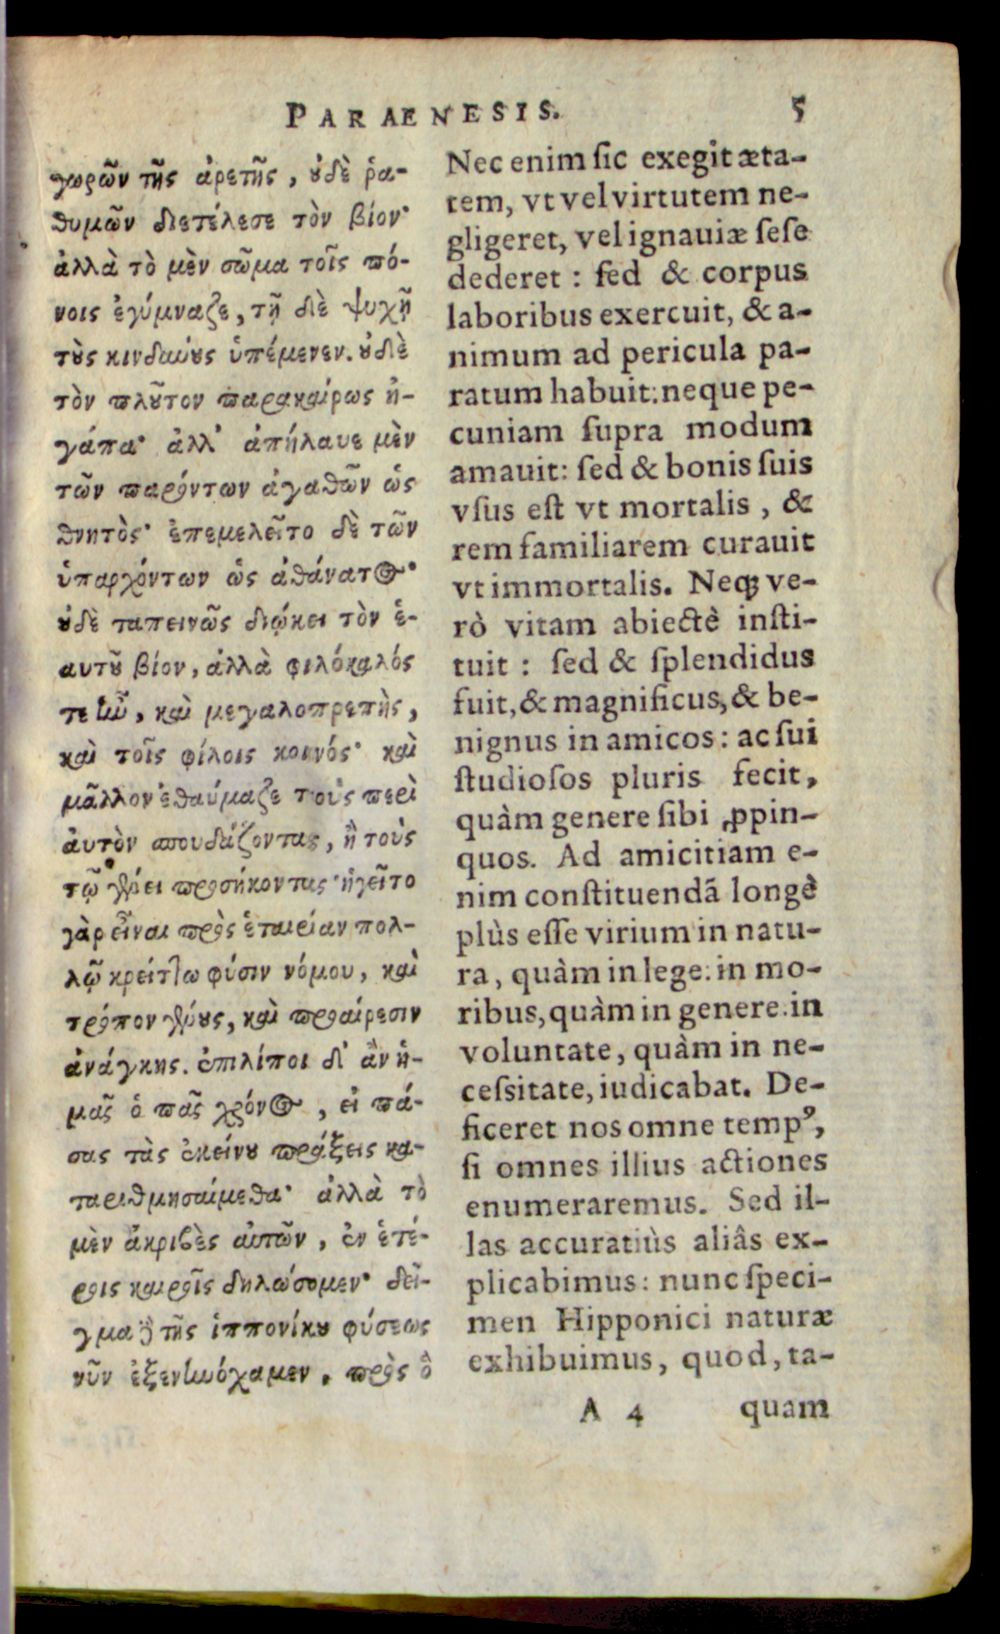 PARAENESIS. 5
γωρῶν τῆς ἀρετῆς, ȣδὲ ῥα-
θυμῶν διετέλεσε τὸν βίον·
ἀλλὰ τὸ μὲν σῶμα τοῖς πό-
νοις ἐγύμναζε, τῇ δὲ ψυχῇ
τȣ̀ς κινδύνȣς ὑπέμενεν. ȣδὲ
τὸν πλȣ͂τον παρακαίρως ἠ-
γάπα· ἀλλ' ἀπήλαυε μὲν
τῶν παρόντων ἀγαθῶν ὡς
θνητὸς· ἐπεμελεῖτο δὲ τῶν
ὑπαρχόντων ὡς ἀθάνατος·
ȣδὲ ταπεινῶς διῴκει τὸν ἑ-
αυτȣ͂ βίον, ἀλλὰ φιλόκαλός
τε ἦν, καὶ μεγαλοπρεπὴς,
καὶ τοῖς φίλοις κοινός· καὶ
μᾶλλον ἐθαύμαζε τοὺς περὶ
αὑτὸν σπουδάζοντας, ἢ τοὺς
τῷ γένει προσήκοντας· ἡγεῖτο
γὰρ εἶναι πρὸς ἑταιρίαν πολ-
λῷ κρείττω φύσιν νόμου, καὶ
τρόπον γένȣς, καὶ προαίρεσιν
ἀνάγκης. ἐπιλίποι δ' ἂν ἡ-
μᾶς ὁ πᾶς χρόνος, εἰ πά-
σας τὰς ἐκείνȣ πράξεις κα-
ταριθμησαίμεθα· ἀλλὰ τὸ
μὲν ἀκριβὲς αὐτῶν, ἐν ἑτέ-
ροις καιροῖς δηλώσομεν· δεῖ-
γμα δὲ τῆς ἱππονίκȣ φύσεως
νῦν ἐξενηνόχαμεν, πρὸς ὃ
Nec enim ſic exegit æta-
tem, vt vel virtutem ne-
gligeret, vel ignauiæ ſeſe
dederet : ſed & corpus
laboribus exercuit, & a-
nimum ad pericula pa-
ratum habuit: neque pe-
cuniam ſupra modum
amauit: ſed & bonis ſuis
vſus eſt vt mortalis, &
rem familiarem curauit
vt immortalis. Neqꝫ ve-
rò vitam abiectè inſti-
tuit : ſed & ſplendidus
fuit, & magnificus, & be-
nignus in amicos: ac ſui
ſtudioſos pluris fecit,
quàm genere ſibi ꝓpin-
quos. Ad amicitiam e-
nim conſtituendā longè
plùs eſſe virium in natu-
ra, quàm in lege: in mo-
ribus, quàm in genere: in
voluntate, quàm in ne-
ceſsitate, iudicabat. De-
ficeret nos omne tempꝰ,
ſi omnes illius actiones
enumeraremus. Sed il-
las accuratiùs aliâs ex-
plicabimus: nunc ſpeci-
men Hipponici naturæ
exhibuimus, quod, ta-
A 4 quam